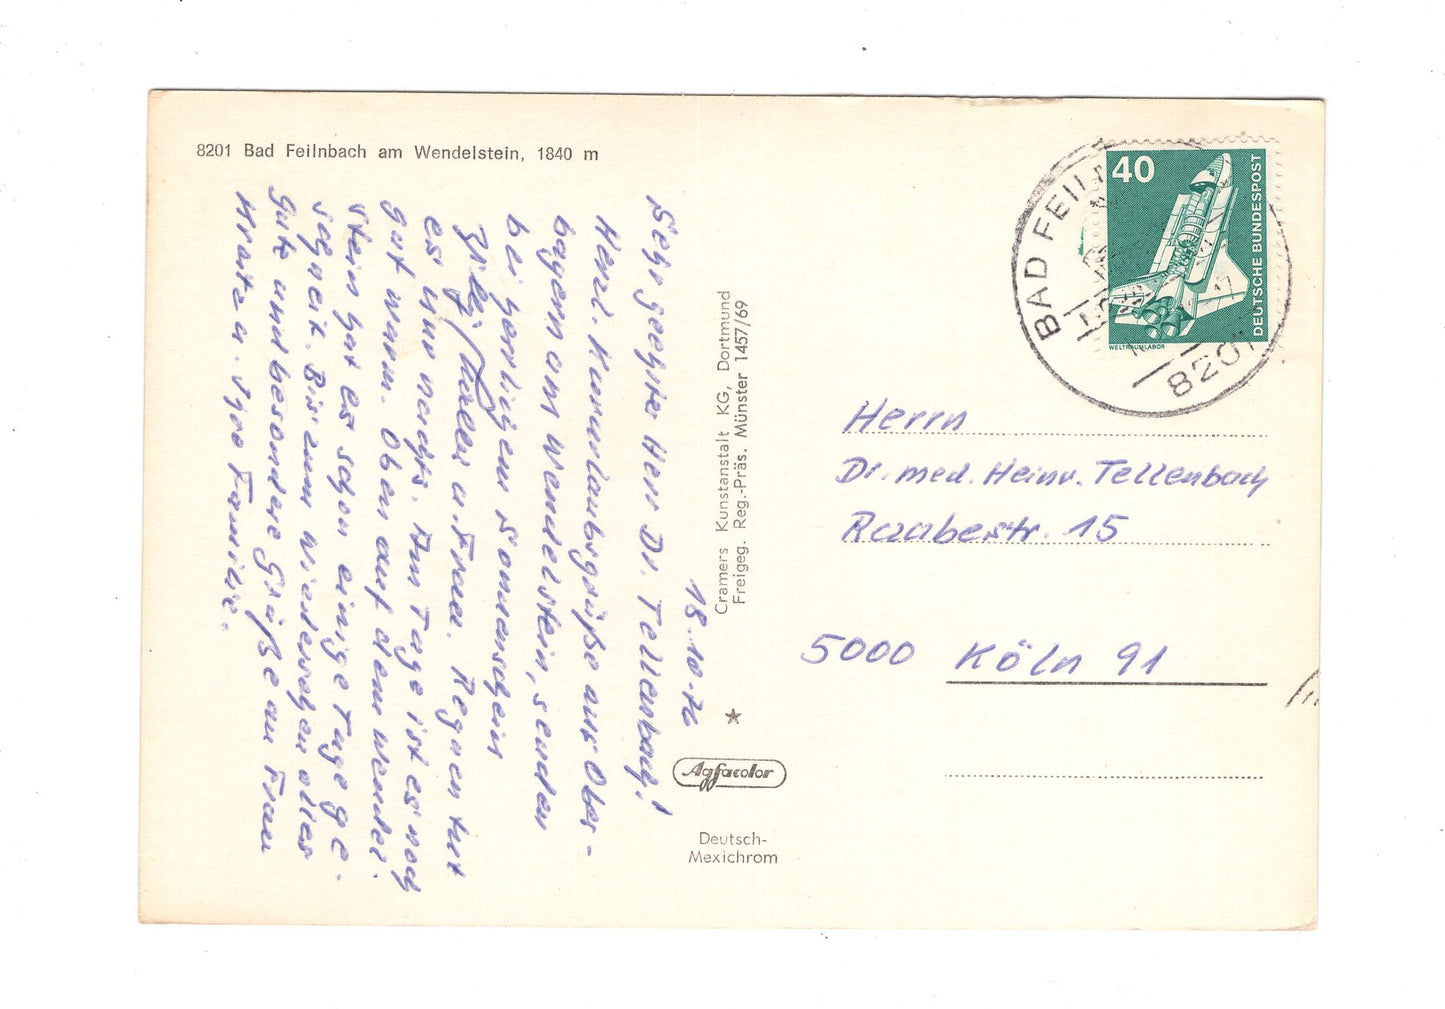 8201 Bad Feilnbach am Wendelstein, 1840 m
18.10.76
Sehr geehrter Herr Dr. Tellenbach!
Herzl. Kururlaubsgrüße aus Ober-
bayern am Wendelstein, senden
bei herrlichem Sonnenschein
u. Frau. Regnen tut
es nur nachts. Am Tage ist es noch
gut warm. Oben auf dem Wendel-
stein hat es schon einige Tage ge-
schneit. Bis zum Wiedersehen alles
Gute und besondere Grüße an Frau
u. Ihre Familie.
Cramers Kunstanstalt KG, Dortmund
Freigeg. Reg.-Präs. Münster 1457/69
Agfacolor
Deutsch-
Mexichrom
40
DEUTSCHE BUNDESPOST
WELTRAUMLABOR
BAD FEILN
8201
Herrn
Dr. med. Heinr. Tellenbach
Raabestr. 15
5000 Köln 91